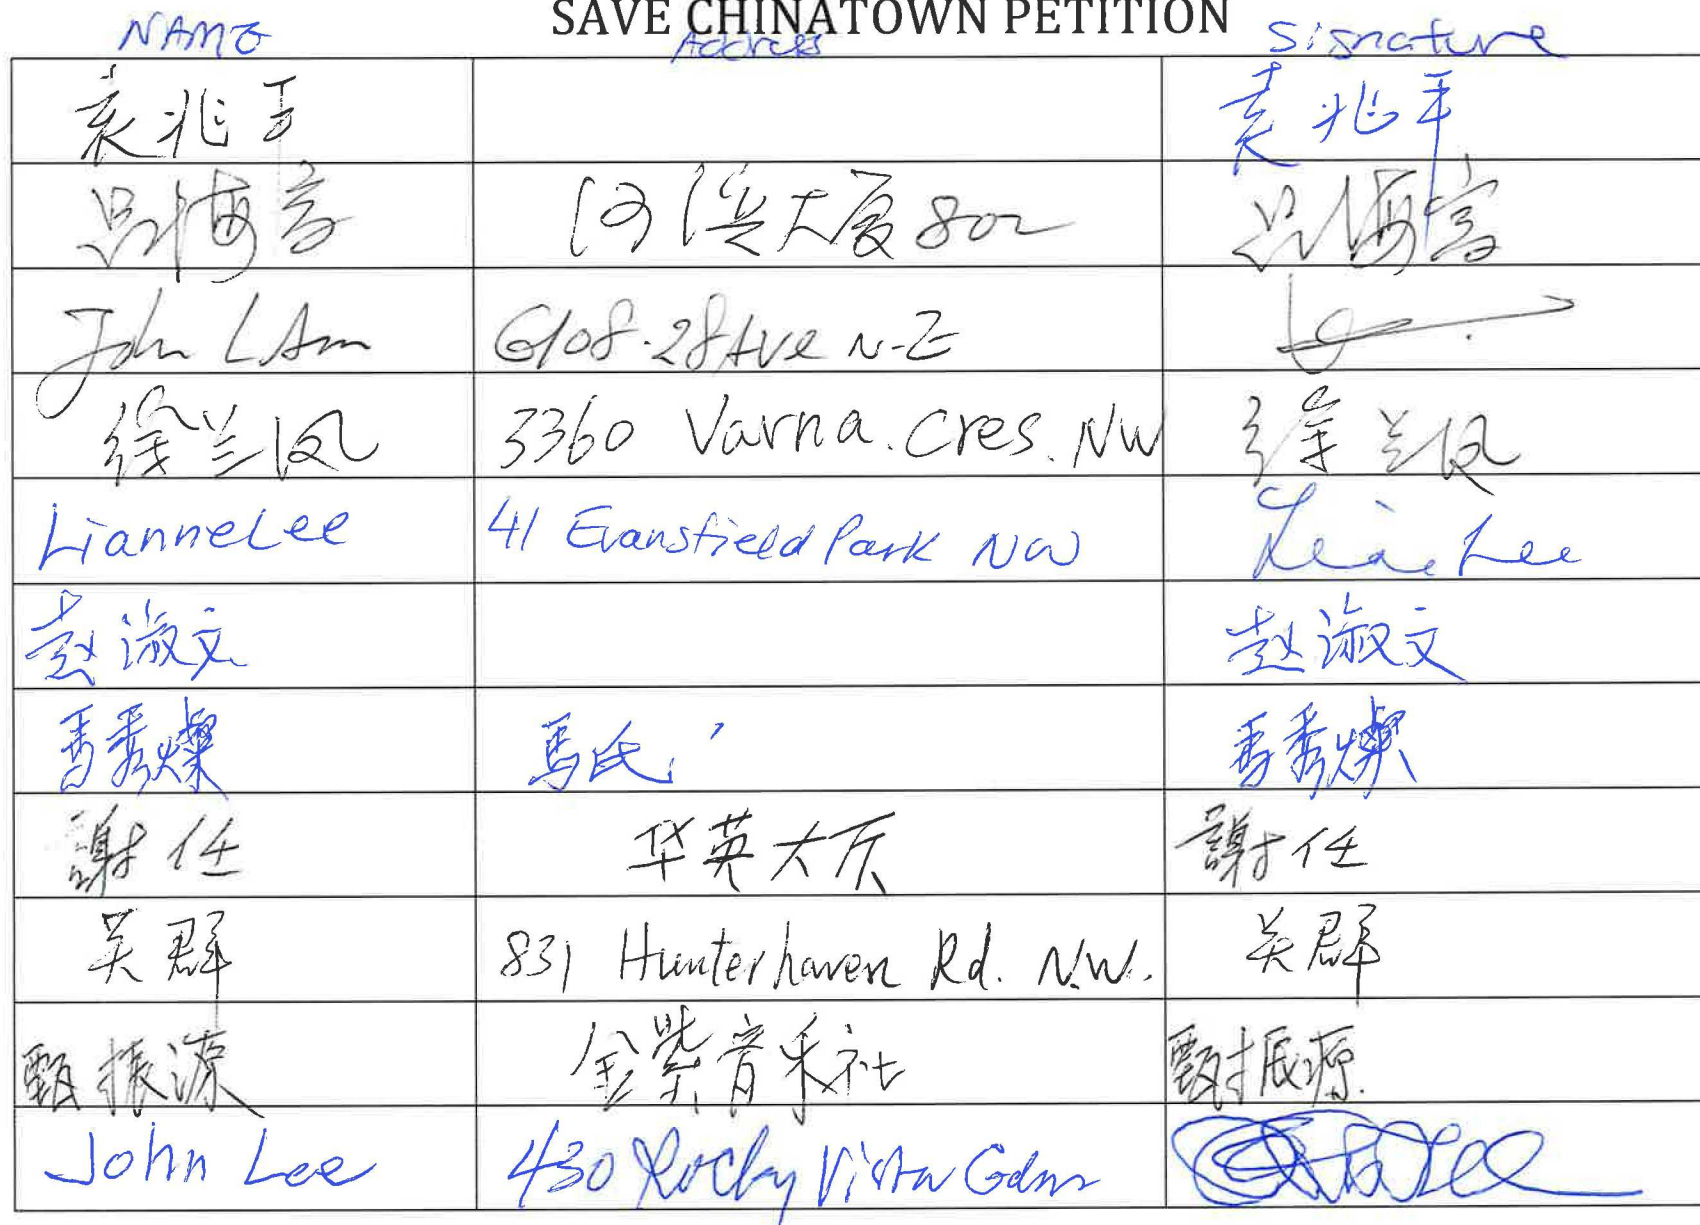 SAVE CHINATOWN PETITION
NAME Address Signature
袁兆平 袁兆平
吕海宫 大厦802 吕海宫
John LAm 6108-28 Ave N-E
徐兰凤 3360 Varna. Cres. NW 徐兰凤
Lianne Lee 41 Evansfield Park NW Lee
赵淑文 赵淑文
馬秀燦 馬氏 馬秀燦
謝任 华英大厅 謝任
关群 831 Hunterhaven Rd. N.W. 关群
甄振源 金紫音乐社 甄振源
John Lee 430 Rocky Vista Gdns Lee